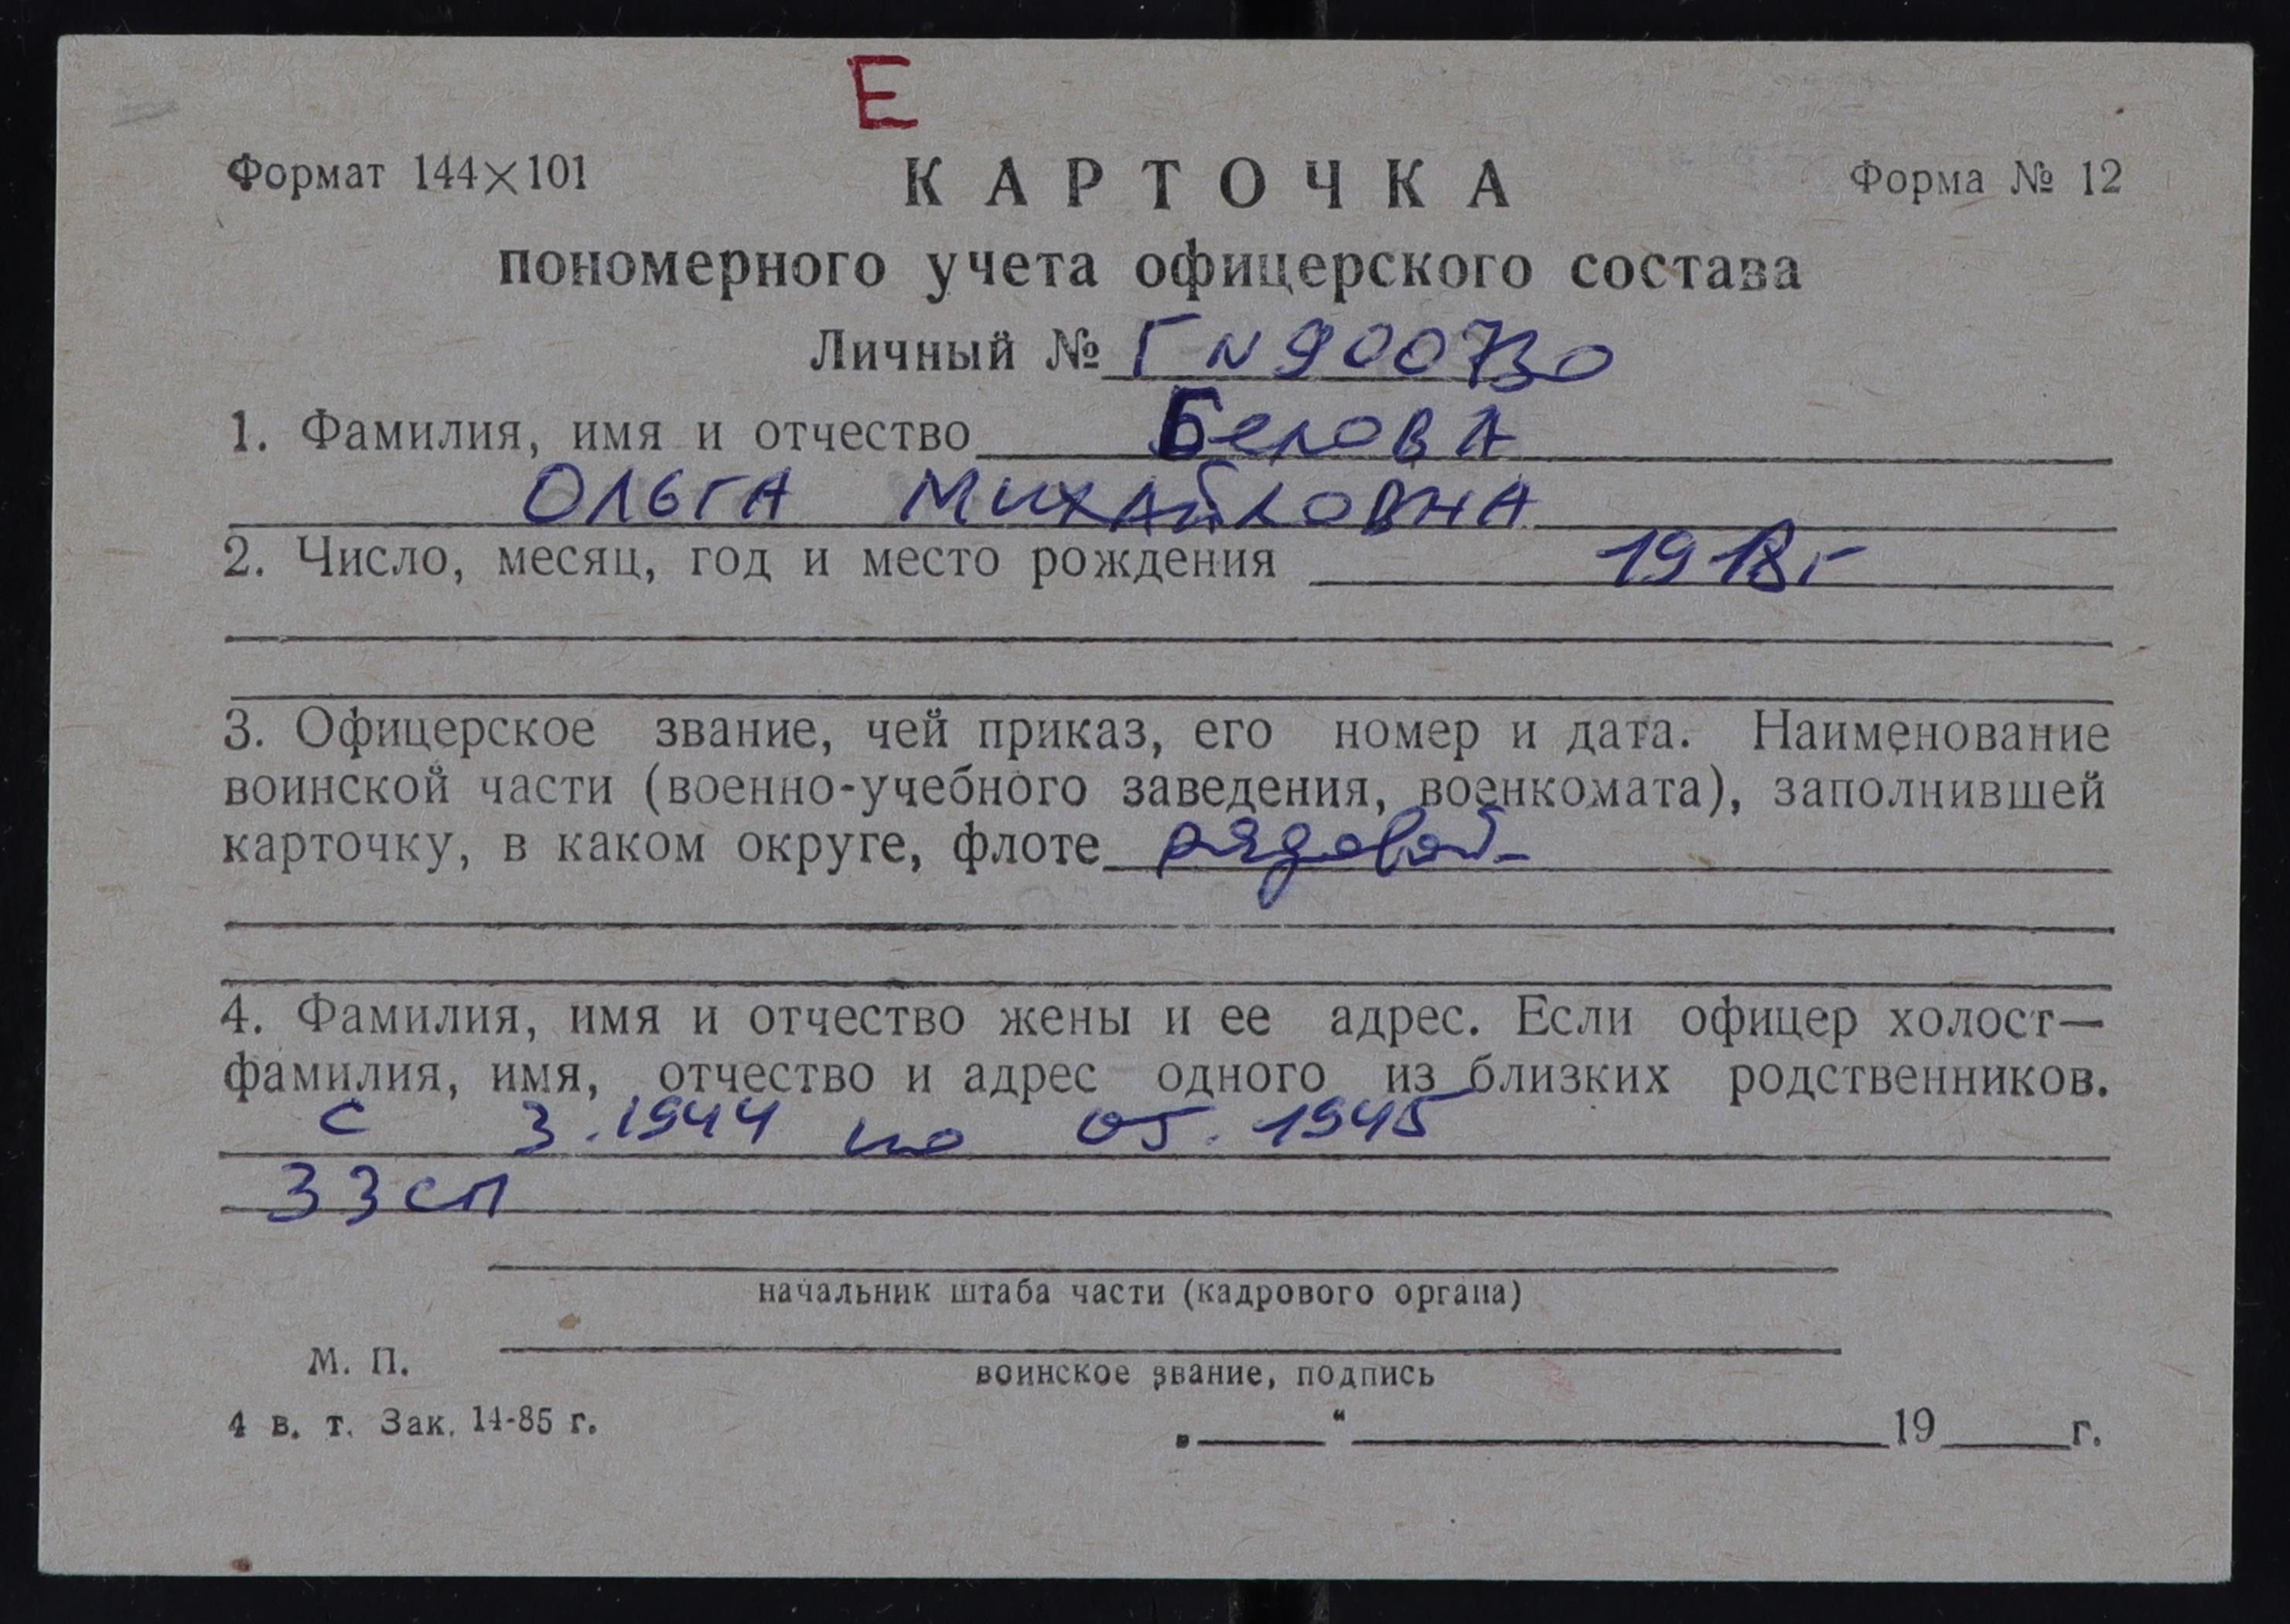 Е
Формат 144×101 КАРТОЧКА Форма № 12
пономерного учета офицерского состава
Личный № Г N 900730
1. Фамилия, имя и отчество Белова
Ольга Михайловна
2. Число, месяц, год и место рождения 1918 г
3. Офицерское звание, чей приказ, его номер и дата. Наименование
воинской части (военно-учебного заведения, военкомата), заполнившей
карточку, в каком округе, флоте рядовой
4. Фамилия, имя и отчество жены и ее адрес. Если офицер холост—
фамилия, имя, отчество и адрес одного из близких родственников.
с 3.1944 по 05.1945
33 сп
начальник штаба части (кадрового органа)
М. П.
воинское звание, подпись
4 в. т. Зак. 14-85 г. „ “ 19 г.